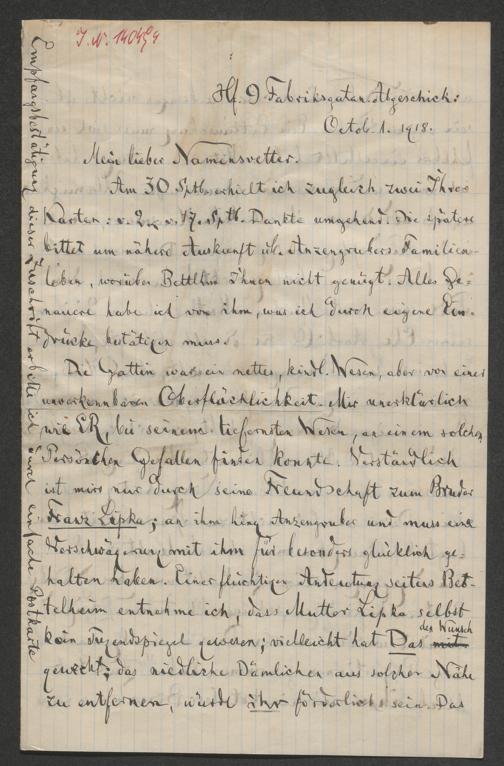 J. N. 140494
Hf. 9 Fabriksgutan Abgeschick:
Octob. 1. 1918.
Mein lieber Namensvetter.
Am 30 Sptb. erhielt ich zugleich zwei Ihre
Karten: v. 2. u. v. 17. Sptb. Dankte umgehend. Die spätere
bittet um nähere Auskunft üb. Anzengrubers Familien-
leben, worüber Bettlhm Ihnen nicht genügt. Alles Ge-
nauere habe ich von ihm, was ich durch eigene Ein-
drücke bestätigen muss.
Die Gattin war ein nettes, kindl. Wesen, aber von einer
unverkennbaren Oberflächlichkeit. Mir unerklärlich
wie ER, bei seinem tiefernsten Wesen, an einem solchen
Persönchen Gefallen finden konnte. Verständlich
ist mirs nur durch seine Freundschaft zum Bruder
Franz Lipka; an ihm hing Anzengruber und muss eine
Verschwägerung mit ihm für besonders glücklich ge-
halten haben. Einer flüchtigen Andeutung seitens Bet-
telheim entnehme ich, dass Mutter Lipka selbst
kein Tugendspiegel gewesen; vielleicht hat Das mit den Wunsch
geweckt; das niedliche Dämlichen aus solcher Nähe
zu entfernen, wurde ihr förderlich sein. Das
Empfangsbestätigung dieser Zuschrift erbitte ich durch einfache Postkarte